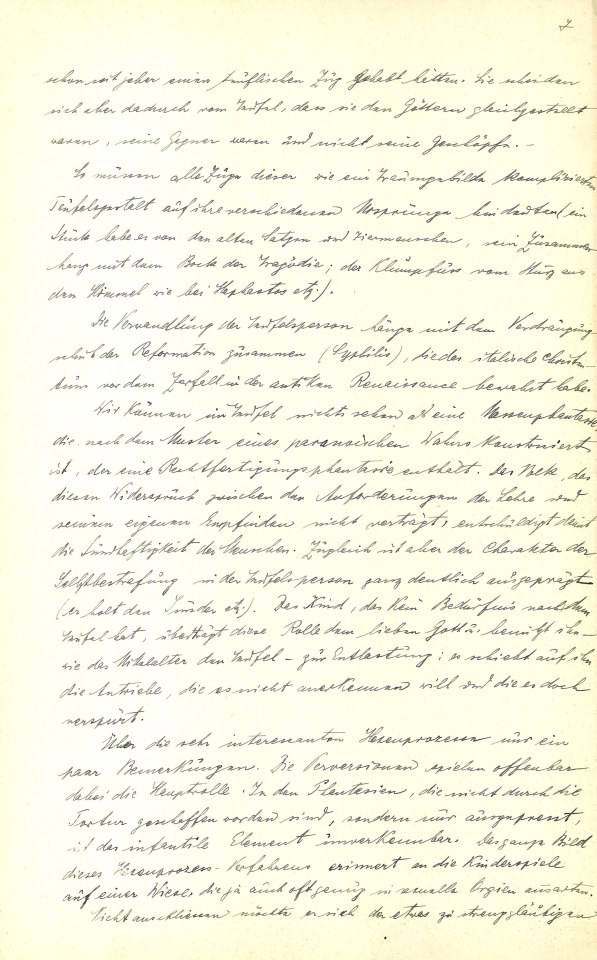 7
schon seit jeher einen teuflischen Zug gehabt hätten. Sie scheiden
sich aber dadurch vom Teufel, dass sie den Göttern gleichgestellt
waren, seine Gegner waren und nicht seine Geschöpfe. -
Es müssen alle Züge dieser wie ein Traumgebilde komplizierten
Teufelsgestalt auf ihre verschiedenen Ursprünge hindeuten (ein
Stück habe er von den alten Satyrn und Tiermenschen, sein Zusammen
hang mit dem Bock der Tragödie; der Klumpfuss vom Sturz aus
dem Himmel wie bei Hephestos etz.).
Die Verwandlung der Teufelsperson hänge mit dem Verdrängung
schub der Reformation zusammen (Syphilis), die das italische Christen-
tum vor dem Zerfall in der antiken Renaissance bewahrt habe.
Wir können im Teufel nichts sehen als eine Massenphantasie
die nach dem Muster eines paranoischen Wahns konstruiert
ist, der eine Rechtfertigungsphantasie enthält. Das Volk, das
diesen Widerspruch zwischen den Anforderungen der Lehre und
seinem eigenen Empfinden nicht verträgt, entschuldigt damit
die Sündhaftigkeit des Menschen. Zugleich ist aber der Charakter der
Selbstbestrafung in der Teufelsperson ganz deutlich ausgeprägt
(er holt den Sünder etz.). Das Kind, das kein Bedürfnis nach dem
Teufel hat, überträgt diese Rolle dem lieben Gott u. benützt ihn -
wie das Mittelalter den Teufel - zur Entlastung; es schiebt auf ihn
die Antriebe, die es nicht anerkennen will und die es doch
verspürt.
Über die sehr interessanten Hexenprozesse nur ein
paar Bemerkungen. Die Perversionen spielen offenbar
dabei die Hauptrolle. In den Phantasien, die nicht durch die
Tortur geschaffen worden sind, sondern nur ausgepresst,
ist das infantile Element unverkennbar. Das ganze Bild
dieses Hexenprozess-Verfahrens erinnert an die Kinderspiele
auf einer Wiese, die ja auch oft genug in sexuelle Orgien ausarten.
Nicht anschliessen möchte er sich der etwas zu strenggläubigen